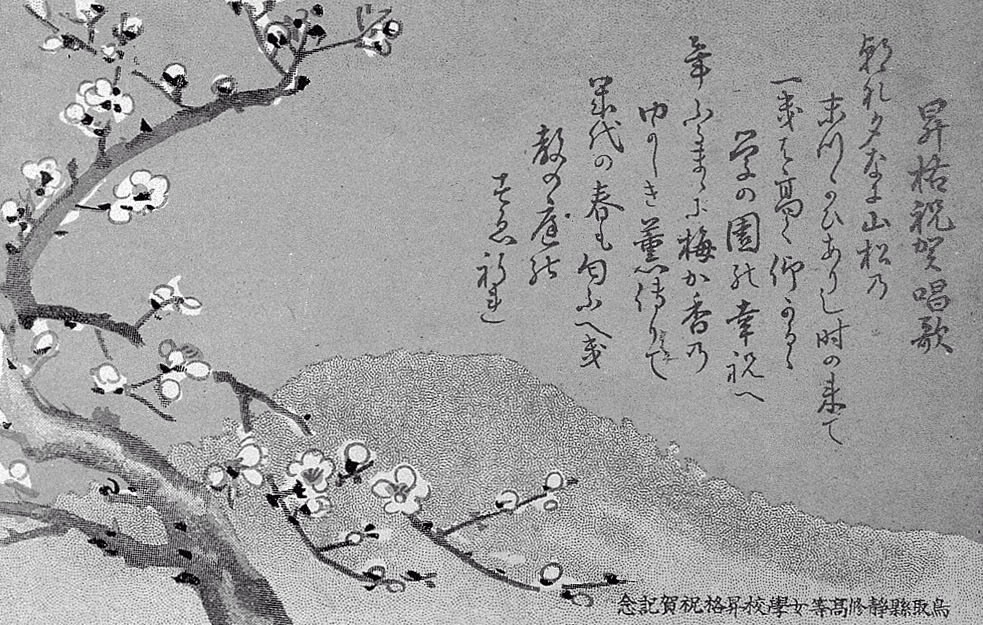 昇格祝賀唱歌
朝な夕なに山松乃
まつかひありし時の来て
一段と高く仰かるゝ
学の園の幸祝へ
年ふるまゝに梅か香乃
ゆかしき薫傳りて
幾代の春も匂ふへき
教の庭の
すゑ祈れ
鳥取縣靜修高等女學校昇格祝賀記念